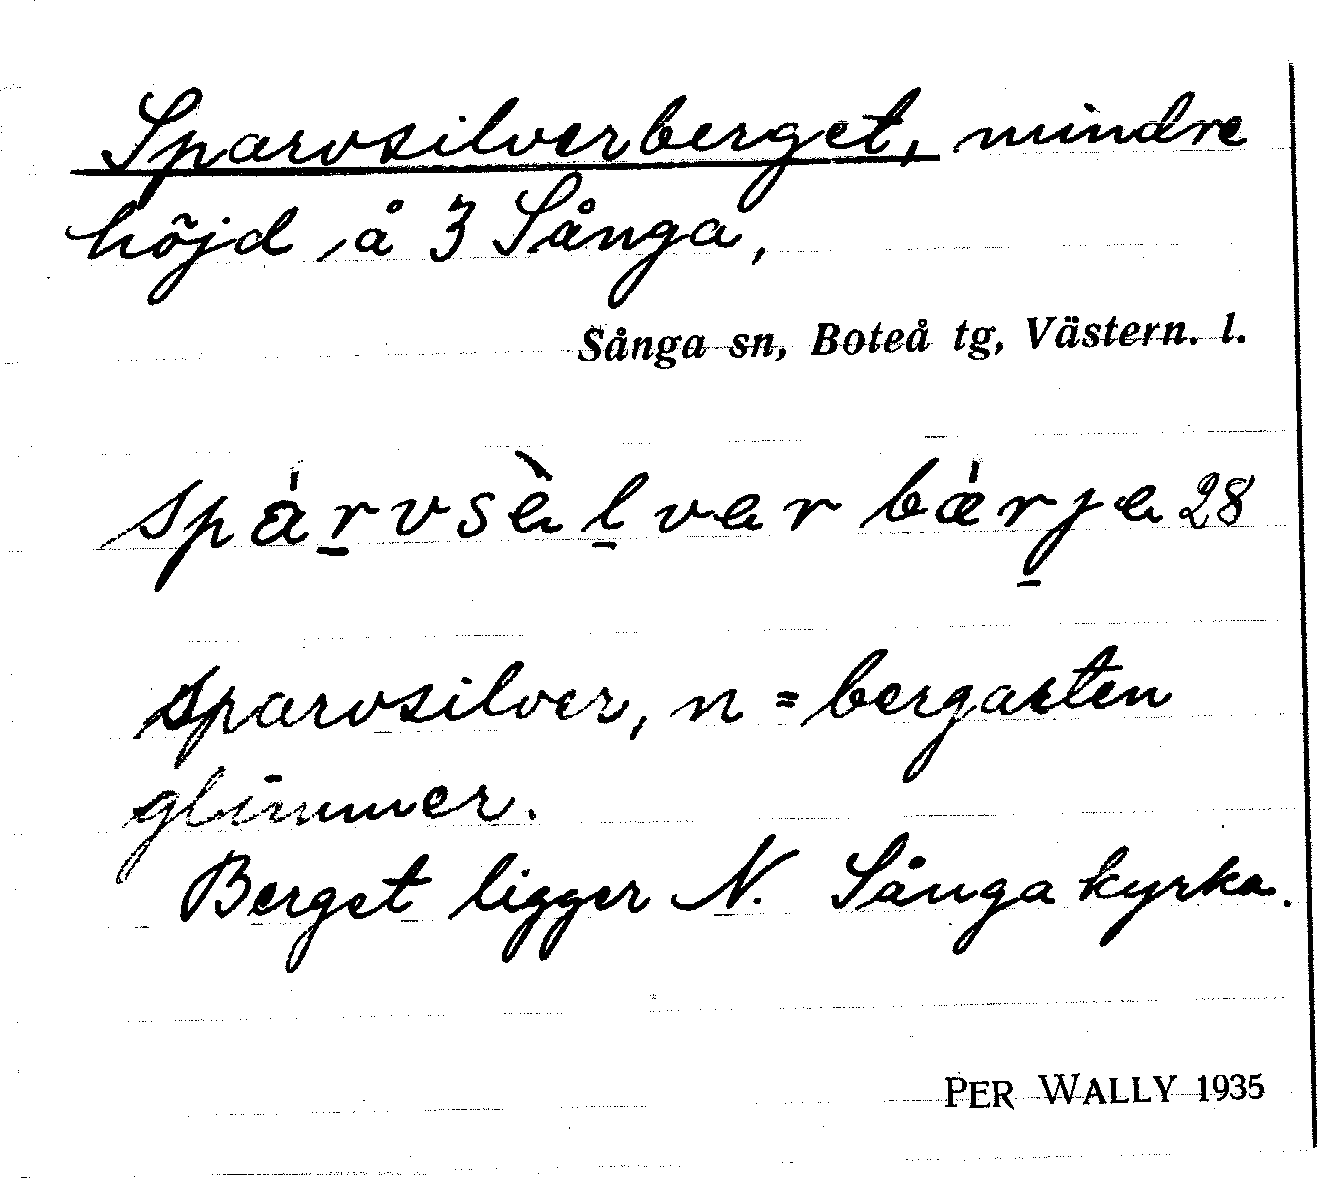 Sparvsilverberget, mindre
höjd å 3 Sånga,
Sånga sn, Boteå tg, Västern. l.
spárvsèlvər bǽrjə 28
sparvsilver, n = bergarten
glimmer.
Berget ligger N. Sånga kyrka.
PER WALLY 1935